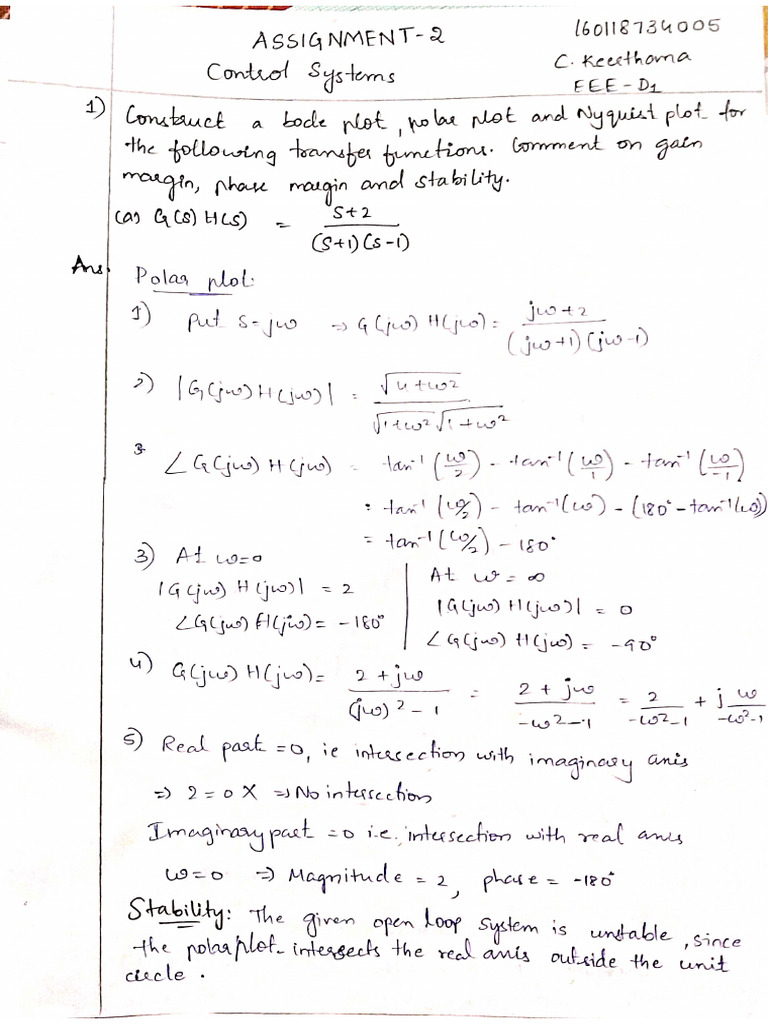 ASSIGNMENT-2
160118734005
Control Systems
C. Keerthana
EEE-D1
1) Construct a bode plot, polar plot and Nyquist plot for
the following transfer functions. Comment on gain
margin, phase margin and stability.
(a) G(s) H(s) = s+2 / (s+1)(s-1)
Ans. Polar plot:
1) Put s=jω ⇒ G(jω) H(jω) = jω+2 / (jω+1)(jω-1)
2) |G(jω) H(jω)| = √4+ω2 / √1+ω2 √1+ω2
3 ∠G(jω) H(jω) = tan-1(ω/2) - tan-1(ω/1) - tan-1(ω/-1)
= tan-1(ω/2) - tan-1(ω) - (180° - tan-1(ω))
= tan-1(ω/2) - 180°
3) At ω=0
|G(jω) H(jω)| = 2
∠G(jω) H(jω) = -180°
At ω = ∞
|G(jω) H(jω)| = 0
∠G(jω) H(jω) = -90°
4) G(jω) H(jω) = 2+jω / (jω)2-1 = 2+jω / -ω2-1 = 2/-ω2-1 + j ω/-ω2-1
5) Real part =0, ie intersection with imaginary axis
⇒ 2=0 X ⇒ No intersection
Imaginary part =0 i.e. intersection with real axis
ω=0 ⇒ Magnitude = 2, phase = -180°
Stability: The given open loop system is unstable, since
the polar plot intersects the real axis outside the unit
circle.